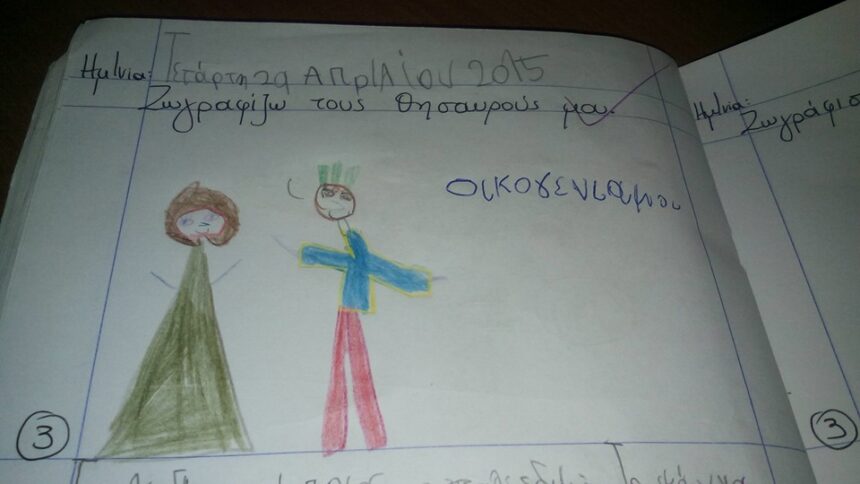 Ημ/νία: Τετάρτη 29 Απριλίου 2015
Ζωγραφίζω τους θησαυρούς μου.
οικογενιαμου
Ημ/νία:
Ζωγράφισ
3
3